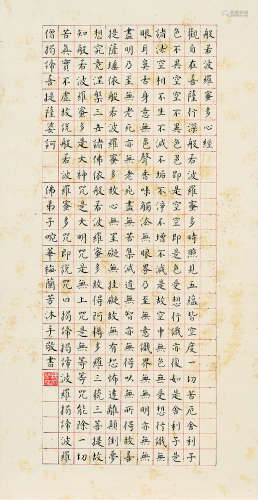 般若波羅蜜多心經
觀自在菩薩行深般若波羅蜜多時照見五蘊皆空度一切苦厄舍利子
色不異空空不異色色即是空空即是色受想行識亦復如是舍利子是
諸法空相不生不滅不垢不淨不增不減是故空中無色無受想行識無
眼耳鼻舌身意無色聲香味觸法無眼界乃至無意識界無無明亦無無
明盡乃至無老死亦無老死盡無苦集滅道無智亦無得以無所得故菩
提薩埵依般若波羅蜜多故心無罣礙無罣礙故無有恐怖遠離顛倒夢
想究竟涅槃三世諸佛依般若波羅蜜多故得阿耨多羅三藐三菩提故
知般若波羅蜜多是大神咒是大明咒是無上咒是無等等咒能除一切
苦真實不虛故說般若波羅蜜多咒即說咒曰揭諦揭諦波羅揭諦波羅
僧揭諦菩提薩婆訶 佛弟子畹華梅蘭芳沐手敬書